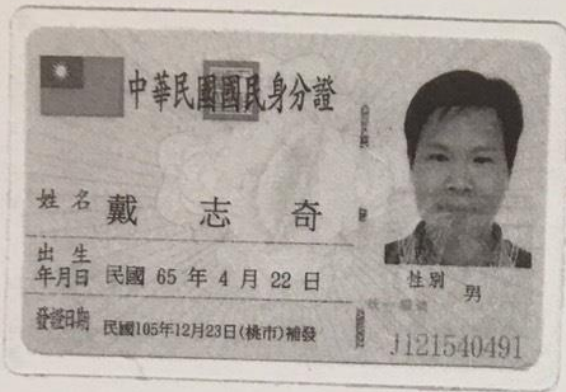 中華民國國民身分證
姓名 戴志奇
出生年月日 民國 65 年 4 月 22 日
性別 男
發證日期 民國105年12月23日(桃市)補發
統一編號
J121540491